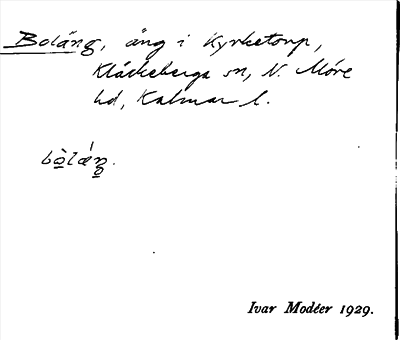 Boläng, äng i Kyrketorp,
Kläckeberga sn, N. Möre
hd, Kalmar l.
bòlǽŋ.
Ivar Modéer 1929.